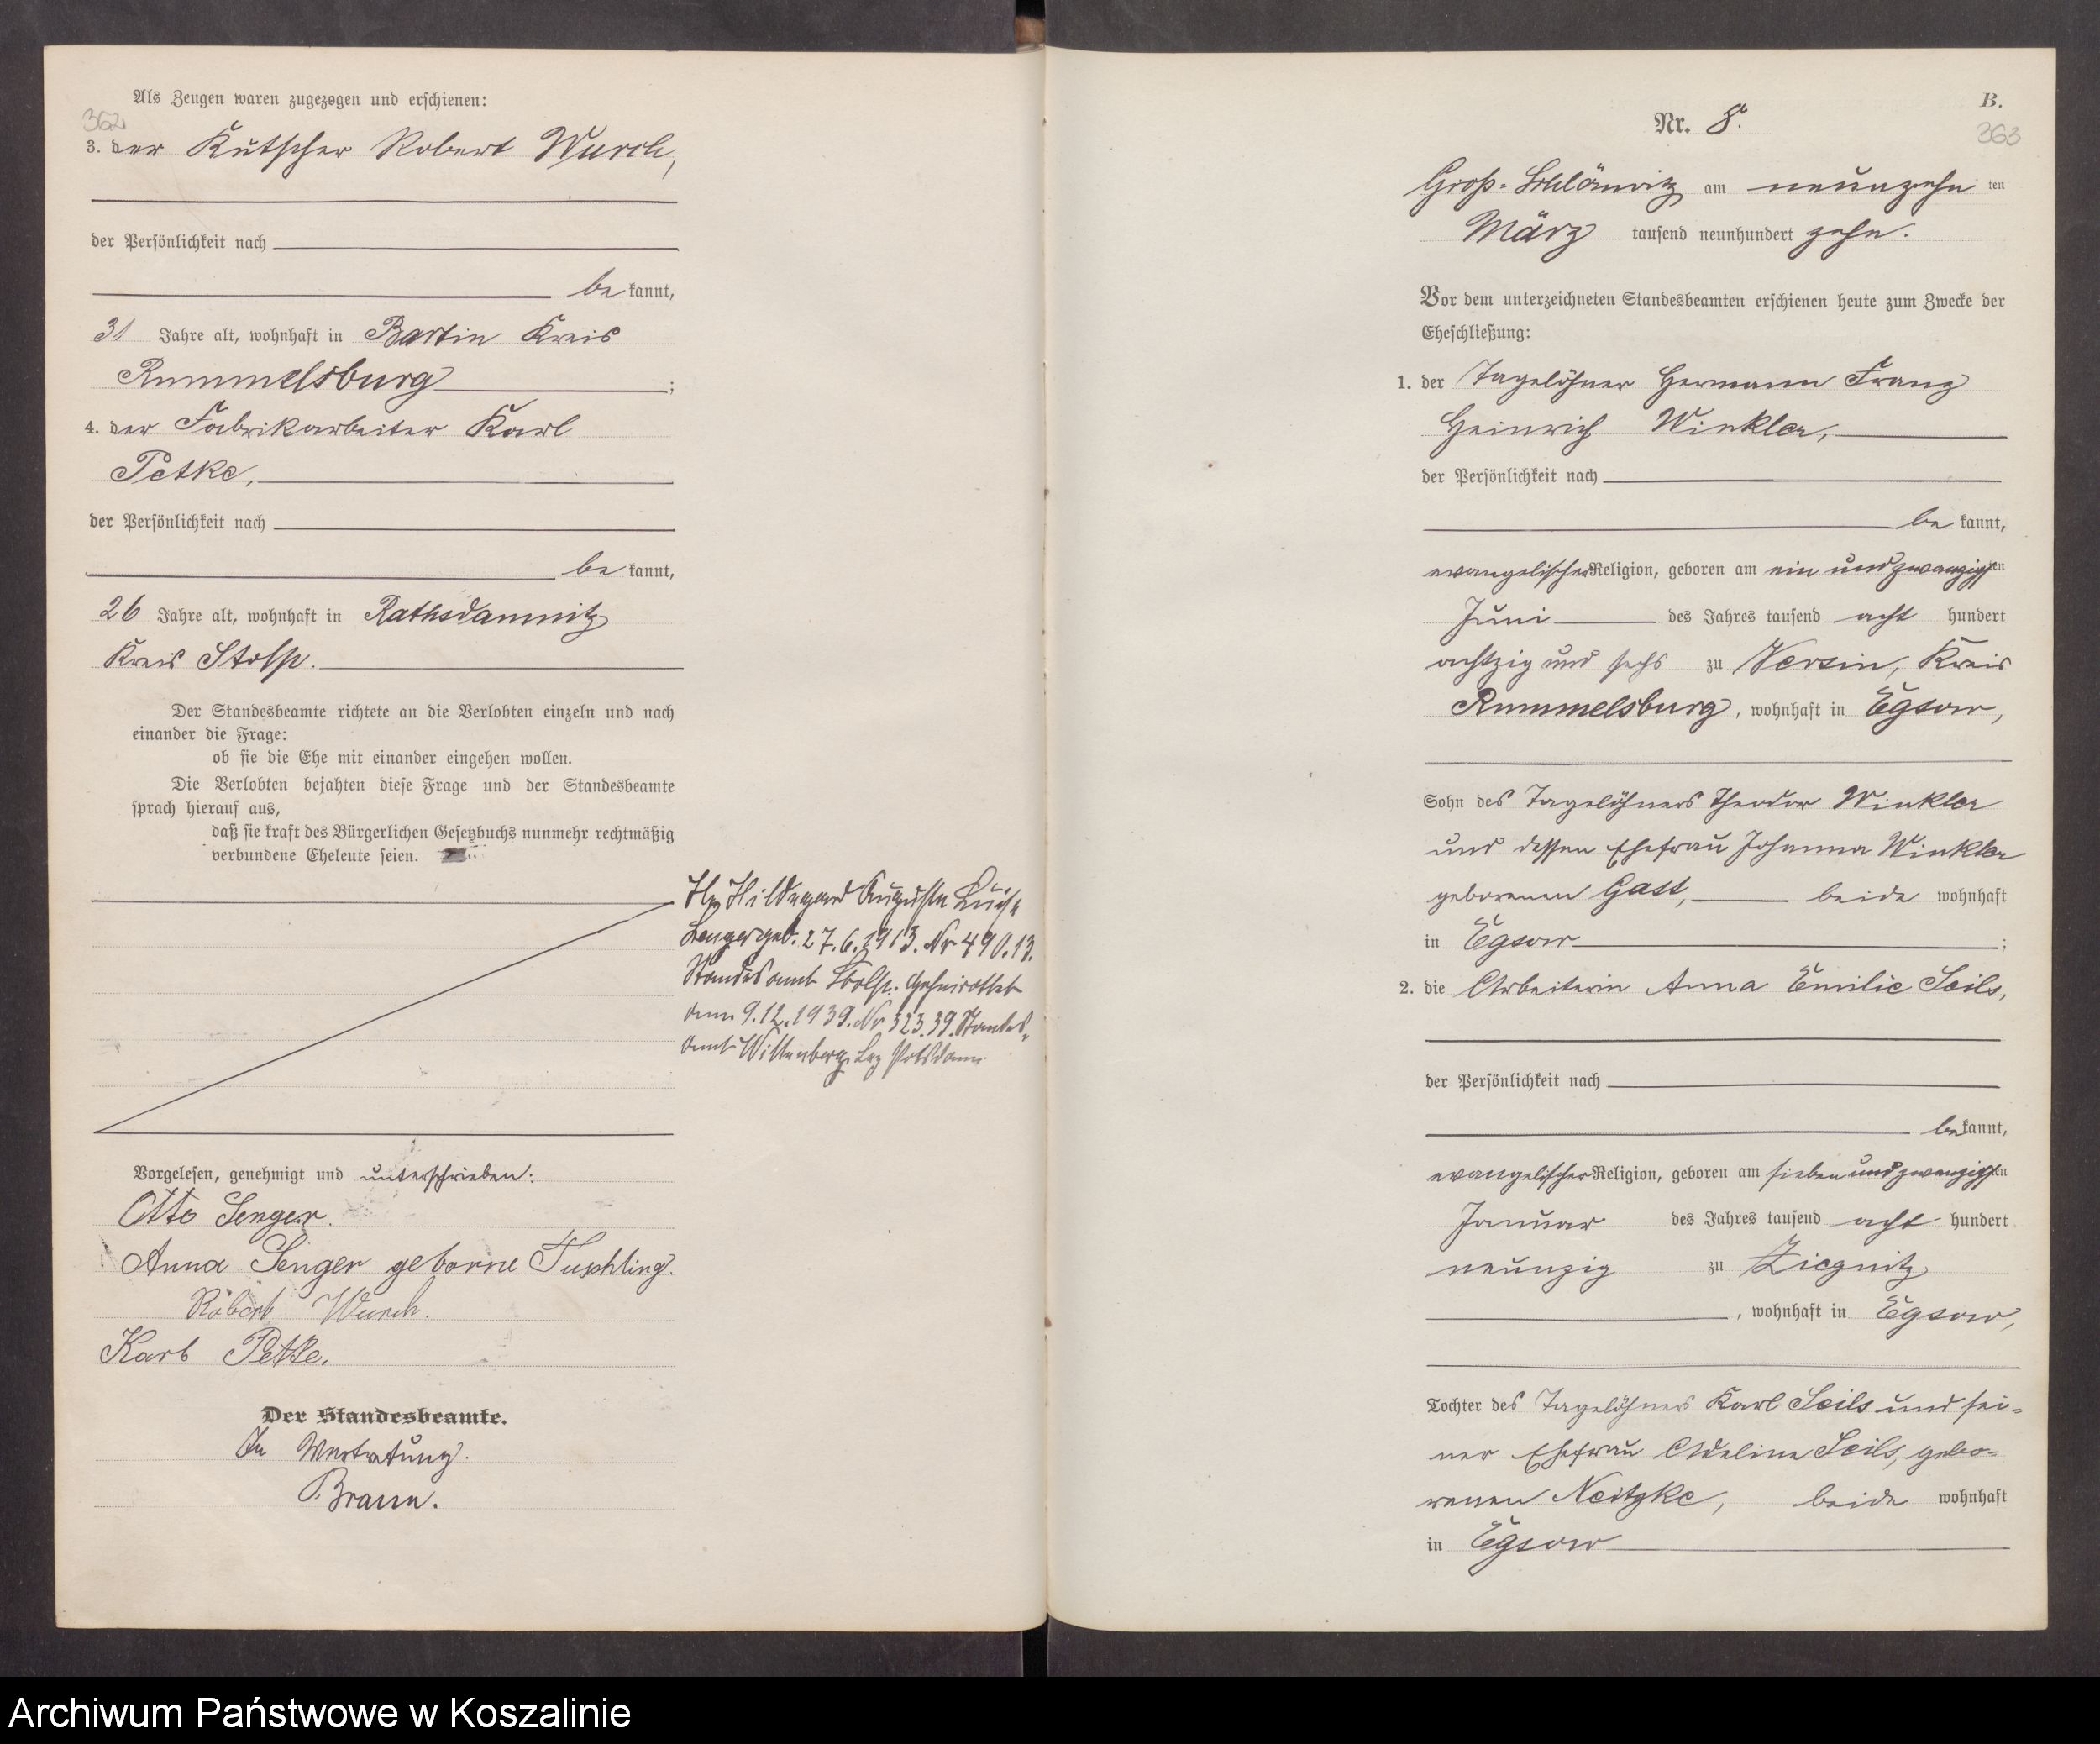 Als Zeugen waren zugezogen und erschienen:
362
3. der Kutscher Robert Wurch,
der Persönlichkeit nach
be kannt,
31 Jahre alt, wohnhaft in Bartin Kreis
Rummelsburg ;
4. der Fabrikarbeiter Karl
Petke,
der Persönlichkeit nach
be kannt,
26 Jahre alt, wohnhaft in Rathsdamnitz
Kreis Stolp.
Der Standesbeamte richtete an die Verlobten einzeln und nach
einander die Frage:
ob sie die Ehe mit einander eingehen wollen.
Die Verlobten bejahten diese Frage und der Standesbeamte
sprach hierauf aus,
daß sie kraft des Bürgerlichen Gesetzbuchs nunmehr rechtmäßig
verbundene Eheleute seien.
Hildegard Auguste Luise
Senger geb. 27.6.1913. Nr 490.13.
Standesamt Stolp. Geheirathet
am 9.12.1939. Nr 323.39. Standes-
amt Wittenberge Bez Potsdam
Vorgelesen, genehmigt und unterschrieben:
Otto Senger.
Anna Senger geborne Tuschling.
Robert Wurch.
Karl Petke.
Der Standesbeamte.
In Vertretung.
Braun.
B.
Nr. 8.
363
Groß-Schlönwitz am neunzehn ten
März tausend neunhundert zehn.
Vor dem unterzeichneten Standesbeamten erschienen heute zum Zwecke der
Eheschließung:
1. der Tagelöhner Hermann Franz
Heinrich Winkler,
der Persönlichkeit nach
be kannt,
evangelischer Religion, geboren am ein und zwanzigsten
Juni des Jahres tausend acht hundert
achtzig und sechs zu Versin, Kreis
Rummelsburg, wohnhaft in Egsow,
Sohn des Tagelöhners Theodor Winkler
und dessen Ehefrau Johanna Winkler
geborenen Gast, beide wohnhaft
in Egsow ;
2. die Arbeiterin Anna Emilie Seils,
der Persönlichkeit nach
be kannt,
evangelischer Religion, geboren am sieben und zwanzigsten
Januar des Jahres tausend acht hundert
neunzig zu Ziegnitz
, wohnhaft in Egsow,
Tochter des Tagelöhners Karl Seils und sei-
ner Ehefrau Adeline Seils, gebo-
renen Neitzke, beide wohnhaft
in Egsow
Archiwum Państwowe w Koszalinie